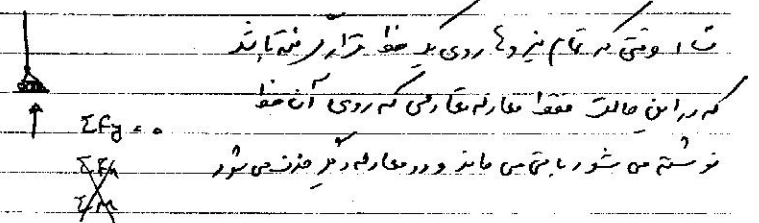 ت ۱ وقتی که تمام نیروها روی یک خط قرار گرفته باشند
که در این حالت فقط معادله تعادلی که روی آن خط
ΣFy = 0
نوشته می شود باقی می ماند و دو معادله دیگر حذف می شود
ΣFx
ΣM